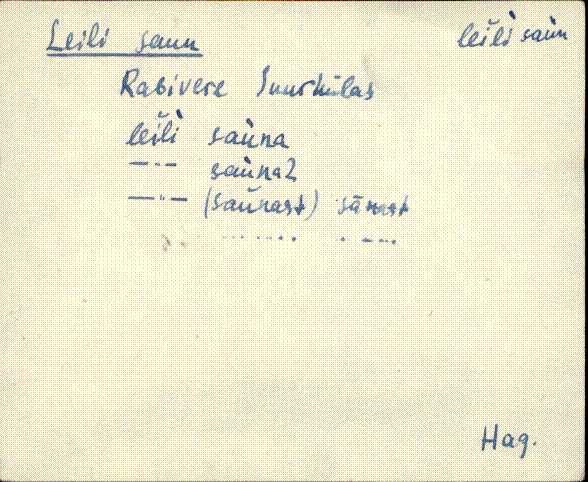 Leili saun
leìlì saùn
Rabivere Suurkülas
leìlì saùna
—"— saùnal
—"— (saùnast) sānast
Hag.